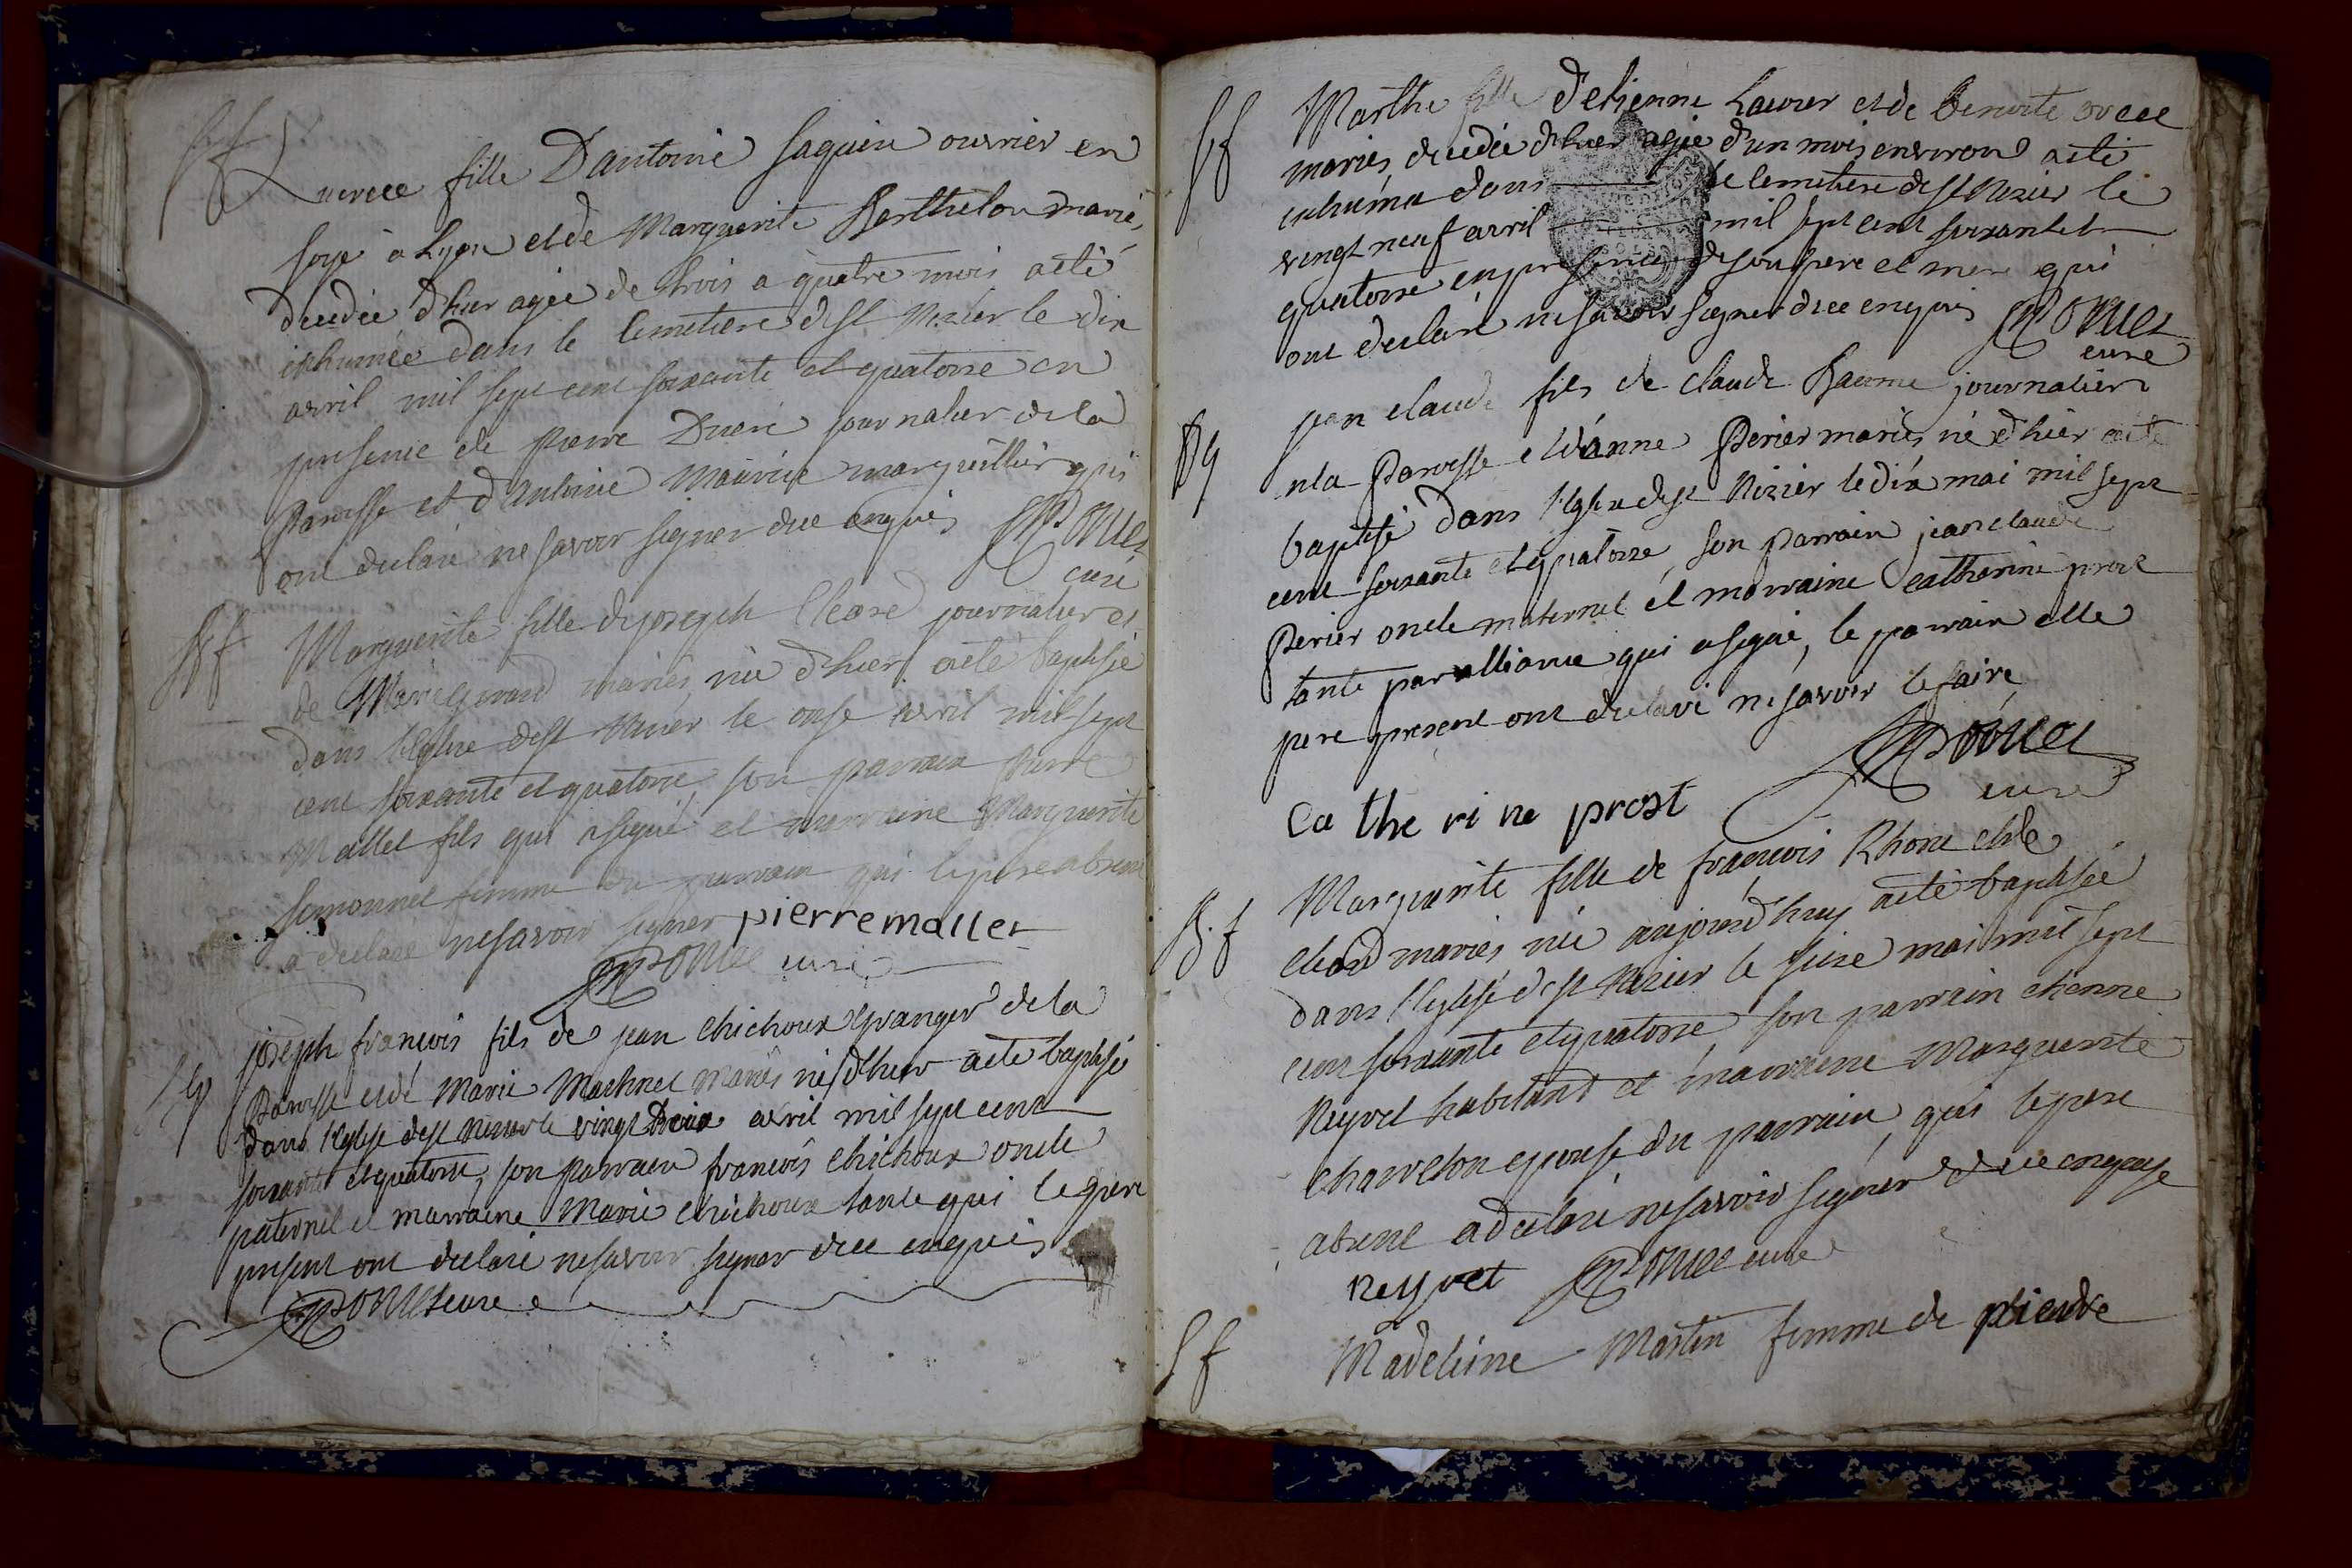 fille D'antoine saquin ouvrier en
soye a Lyon et de Marguerite Berthelon mariés,
decedée d'hier agée de trois a quatre mois a eté
inhumée dans le cemetiere de st Nizier le dix
avril mil sept cent soixante et quatorze en
presence de pierre journalier de la
Paroisse et d'antoine Mauvise marguillier qui
ont declaré ne savoir signer de ce enquis
curé
Bf Marguerite fille de joseph journalier et
de mariés, née d'hier a eté baptisée
dans l'eglise de st Nizier le onse avril mil sept
cent soixante et quatorze, son parrain pierre
Mallet fils qui a signé et marraine Marguerite
Simonnet femme du parrain qui le pere absent
a declaré ne savoir signer pierre mallet
curé
Bg joseph françois fils de jean Chichoux granger de la
Paroisse et de Marie mariés né d'hier a eté baptisé
dans l'eglise de st Nizier le vingt avril mil sept cent
soixante et quatorze, son parrain françois Chichoux oncle
paternel et marraine Marie Chichoux tante qui le pere
present ont declaré ne savoir signer de ce enquis
curé
Sf Marthe fille d'etienne et de Benoite
mariés, decedée d'hier agée d'un mois environ a eté
inhumée dans le cemetiere de st Nizier le
vingt neuf avril mil sept cent soixante et
quatorze en presence de son pere et mere qui
ont declaré ne savoir signer de ce enquis
curé
Bg jean claude fils de claude Baume journalier
en la Paroisse et d'anne Perier mariés, né d'hier a eté
baptisé dans l'eglise de st Nizier le dix mai mil sept
cent soixante et quatorze, son parrain jean claude
Perier oncle maternel et marraine Catherine prost
tante par alliance qui a signé, le parrain et le
pere present ont declaré ne savoir le faire
Ca the ri ne prost
curé
B.f Marguerite fille de françois Rhone et de
mariés née aujourd'huy a eté baptisée
dans l'eglise de st Nizier le seize mai mil sept
cent soixante et quatorze, son parrain etienne
Neyret habitant et marraine Marguerite
Charreton epouse du parrain, qui le pere
absent a declaré ne savoir signer de ce enquise
neyret curé
Sf Madeleine Martin femme de pierre